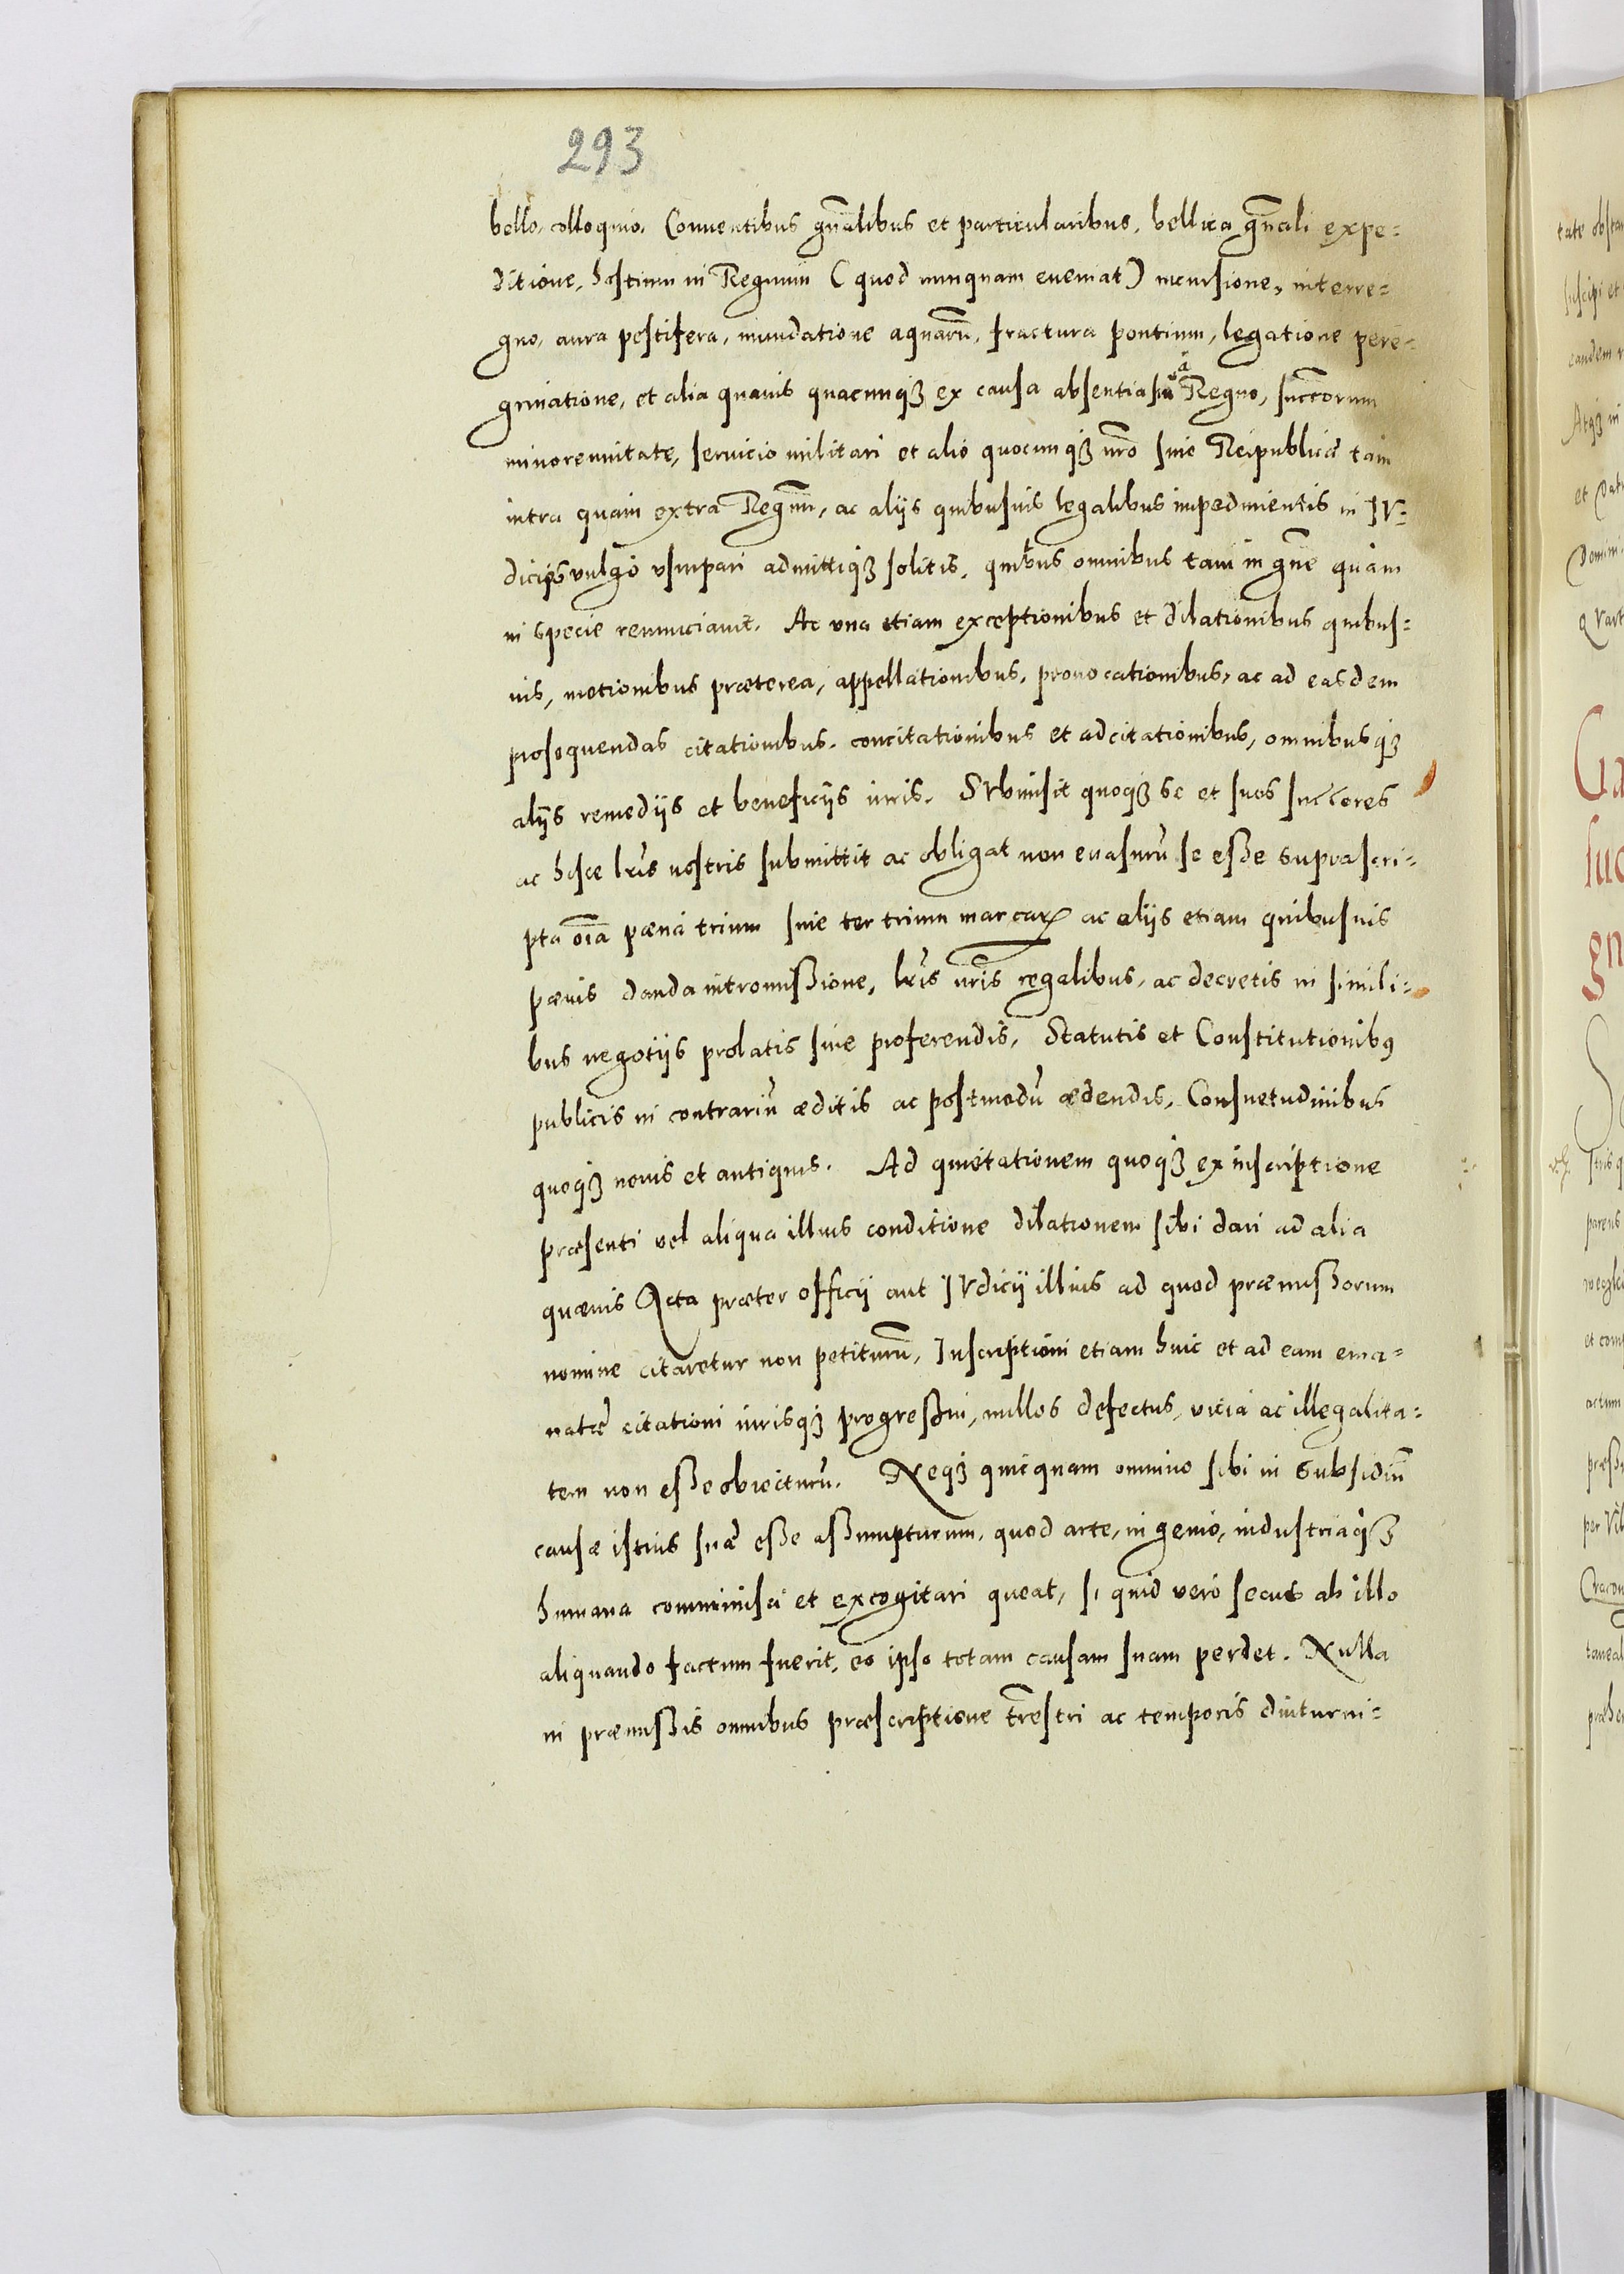 293
bello, colloquio, Conuentibus gnalibus et particularibus, bellica gnali expe=
ditione, hostium in Regnum (quod nunquam eueniat) incursione, interre=
gno, aura pestifera, inundatione aquarū, fractura pontium, legatione pere=
grinatione, et alia quauis quacunqꝫ ex causa absentia sua à Regno, succorum
minorennitate, seruicio militari et alio quocunqꝫ nro siue Reipublicæ tam
intra quam extra Regnū, ac alijs quibusuis legalibus impedimentis in IV=
dicijs vulgo vsurpari admittiqꝫ solitis, quibus omnibus tam in gne quàm
in specie renunciauit. Ac vna etiam exceptionibus et dilationibus quibus=
uis, motionibus præterea, appellationibus, prouocationibus, ac ad easdem
prosequendas citationibus, concitationibus et adcitationibus, omnibusqꝫ
alijs remedijs et beneficijs iuris. SVbmisit quoqꝫ se et suos succores
ac hisce lris nostris submittit ac obligat non euasurū se esse suprascri=
pta oīa pæna trium siue ter trium marcarꝝ ac alijs etiam quibusuis
pænis danda intromissione, lris nris regalibus, ac decretis in simili=
bus negotijs prolatis siue proferendis, Statutis et Constitutionibꝰ
publicis in contrariū æditis ac postmodū ædendis, Consuetudinibus
quoqꝫ nouis et antiquis. Ad quietationem quoqꝫ ex inscriptione
præsenti vel aliqua illius conditione dilationem sibi dari ad alia
quæuis Acta præter officij aut IVdicij illius ad quod præmissorum
nomine citaretur non petiturū, Inscriptioni etiam huic et ad eam ema=
natæ citationi iurisqꝫ progressui, nullos defectus, vicia ac illegalita=
tem non esse obiecturū. Neqꝫ quicquam omnino sibi in subsidiū
causæ istius suæ esse assumpturum, quod arte, ingenio, industriaqꝫ
humana comminisci et excogitari queat, si quid verò secus ab illo
aliquando factum fuerit, eo ipso totam causam suam perdet. Nulla
in præmissis omnibus præscriptione trestri ac temporis diuturni=